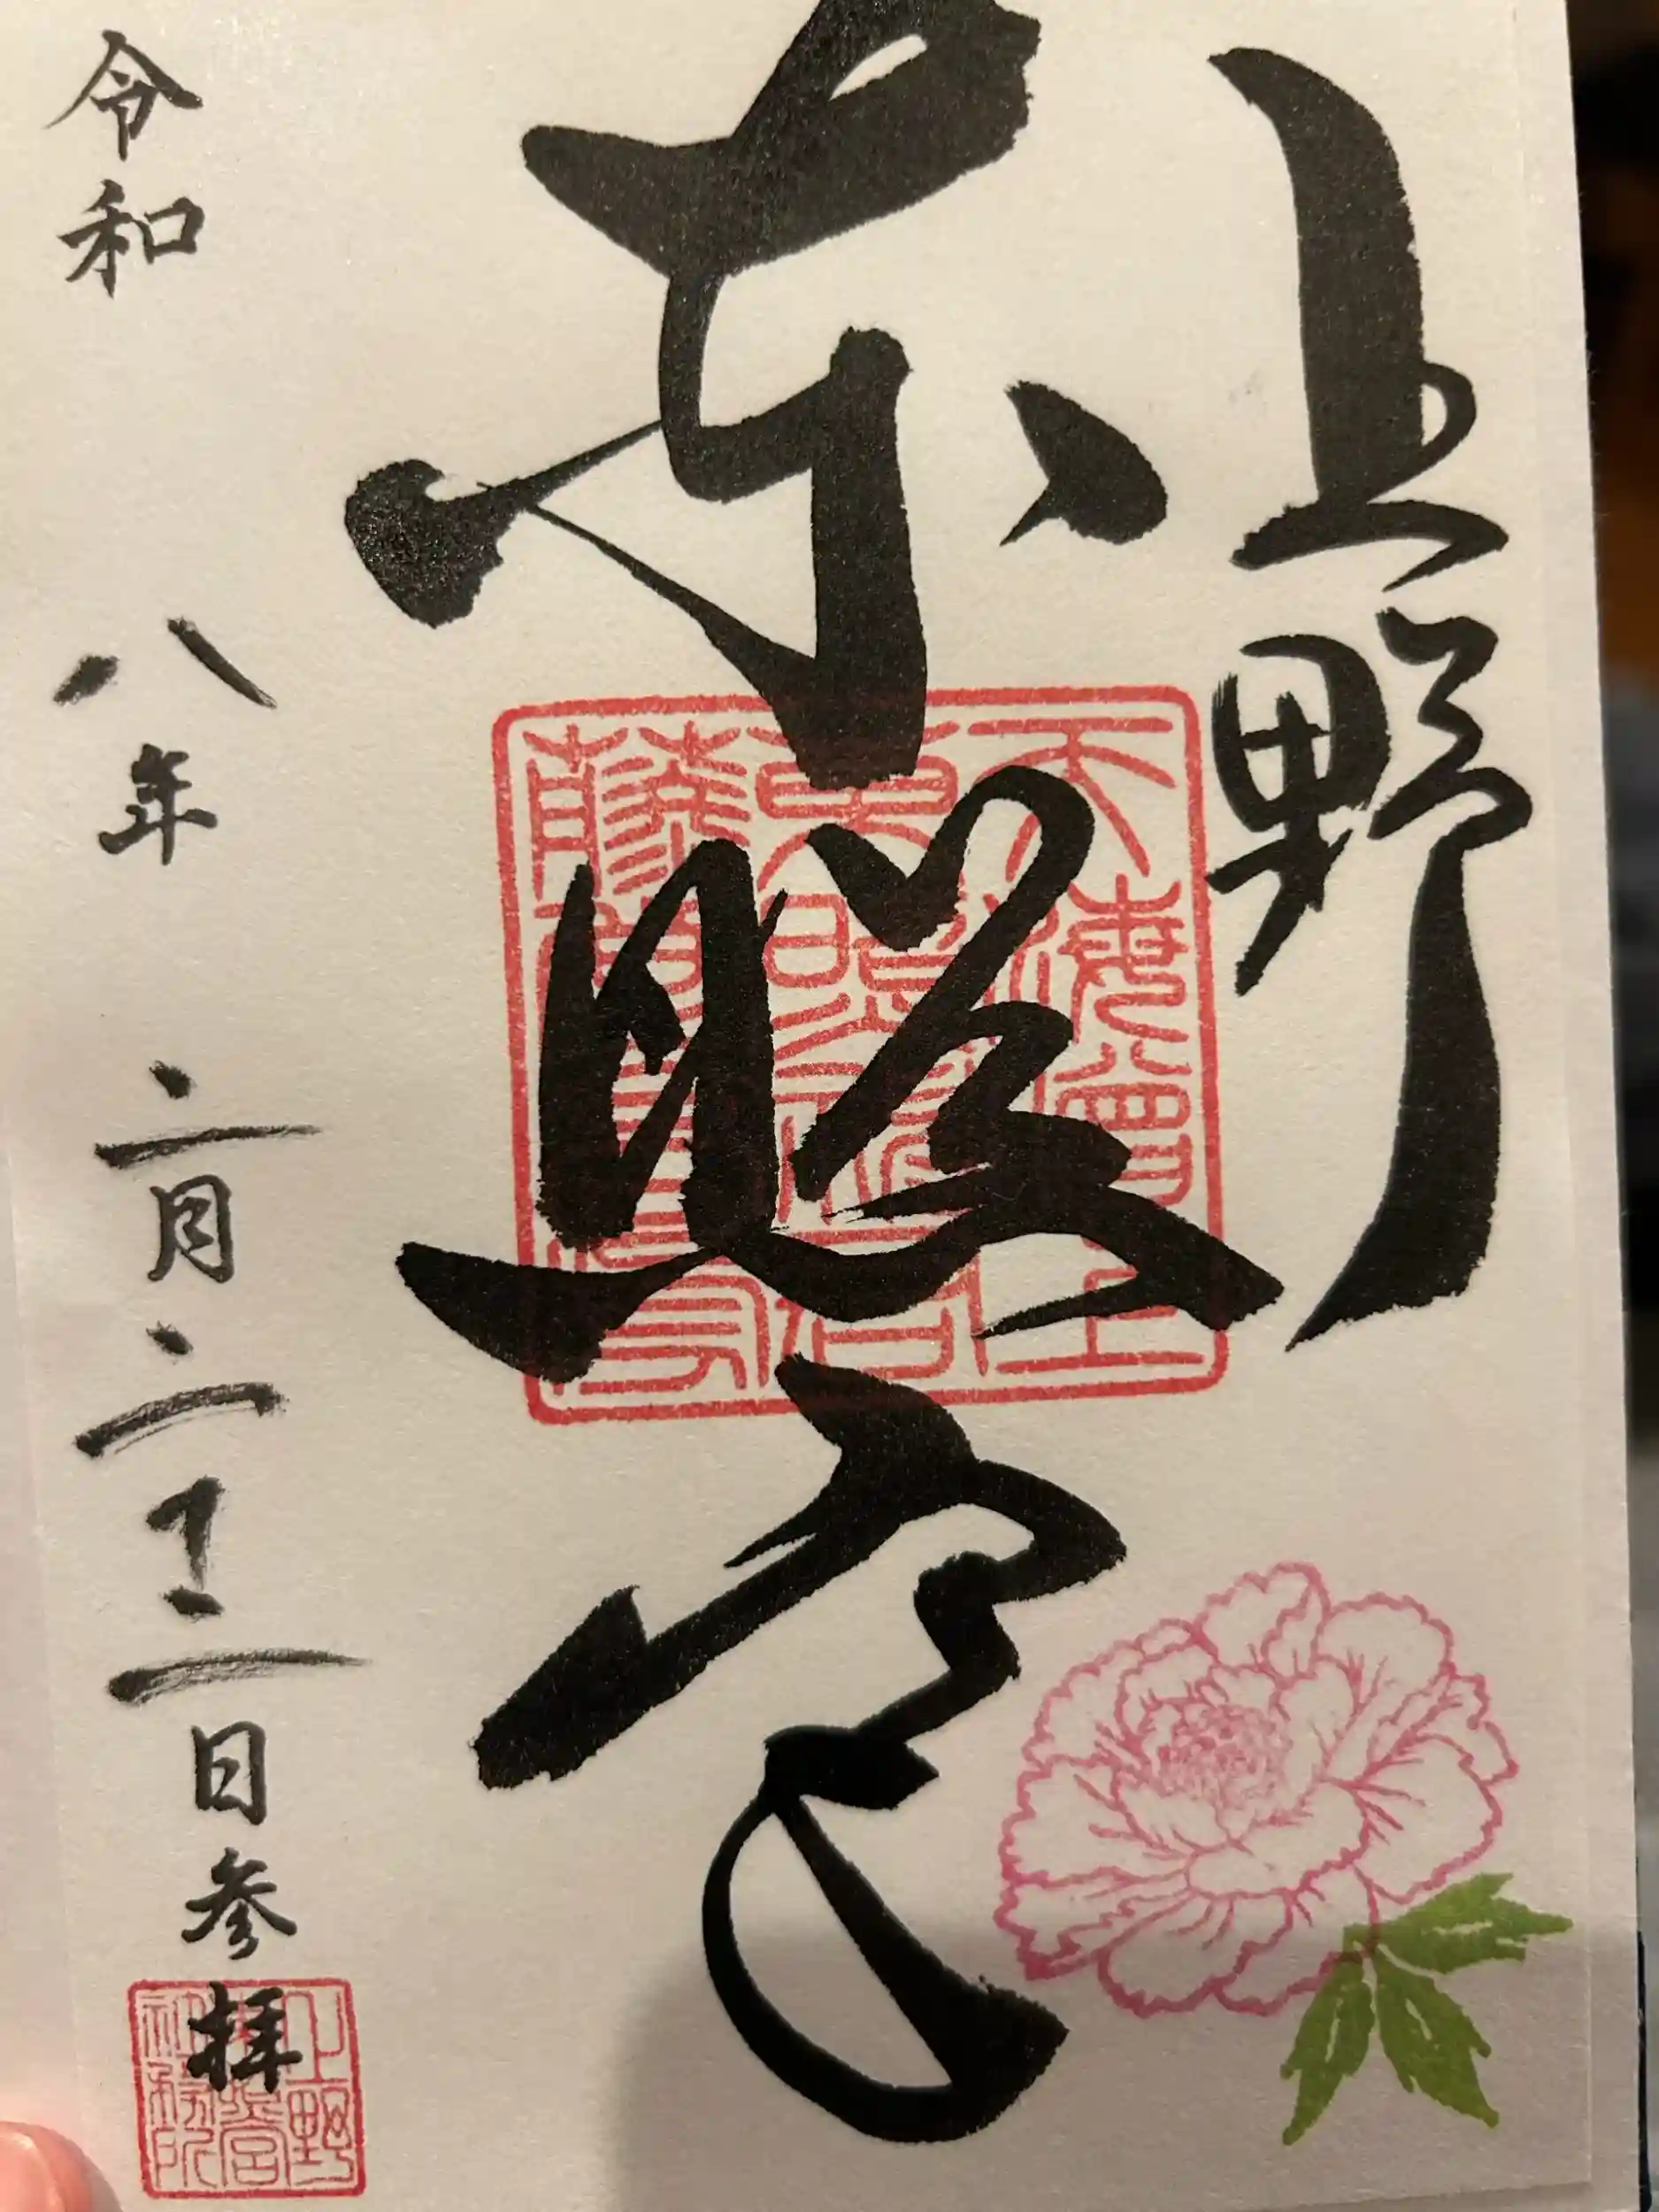 上野
東照宮
令和八年二月二十二日参拝
上野
東照宮
社務所